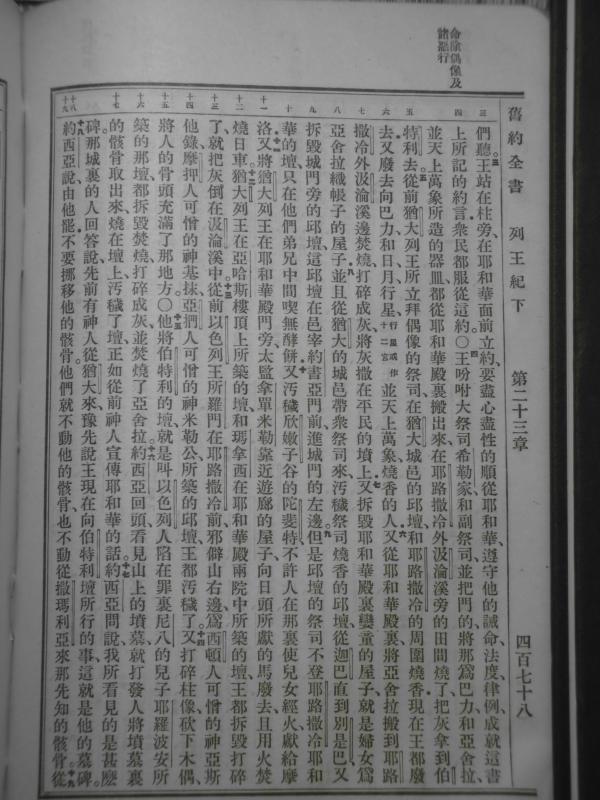 命除偶像及
諸惡行
舊約全書　列王紀下　第二十三章　四百七十八
們聽、王站在柱旁、在耶和華面前立約、要盡心盡性的順從耶和華、遵守他的誡命法度律例、成就這書
上所記的約言、衆民都服從這約。○王吩咐大祭司希勒家、和副祭司、並把門的、將那爲巴力和亞舍拉、
並天上萬象所造的器皿、都從耶和華殿裏搬出來、在耶路撒冷外汲淪溪旁的田間燒了、把灰拿到伯
特利去。從前猶大列王所立拜偶像的祭司、在猶大城邑的邱壇、和耶路撒冷的周圍燒香、現在王都廢
去、又廢去向巴力和日月行星行星或作十二宮並天上萬象燒香的人。又從耶和華殿裏將亞舍拉搬到耶路
撒冷外汲淪溪邊焚燒、打碎成灰、將灰撒在平民的墳上。又拆毀耶和華殿裏孌童的屋子、就是婦女爲
亞舍拉織帳子的屋子。並且從猶大的城邑帶衆祭司來、汚穢祭司燒香的邱壇、從迦巴直到別是巴、又
拆毀城門旁的邱壇、這邱壇在邑宰約書亞門前、進城門的左邊。但是邱壇的祭司不登耶路撒冷耶和
華的壇、只在他們弟兄中間喫無酵餅。又汚穢欣嫩子谷的陀斐特、不許人在那裏使兒女經火獻給摩
洛。又將猶大列王在耶和華殿門旁、太監拿單米勒靠近遊廊的屋子、向日頭所獻的馬廢去、且用火焚
燒日車。猶大列王在亞哈斯樓頂上所築的壇、和瑪拿西在耶和華殿兩院中所築的壇、王都拆毀打碎
了、就把灰倒在汲淪溪中。從前以色列王所羅門在耶路撒冷前、邪僻山右邊、爲西頓人可憎的神亞斯
他錄、摩押人可憎的神基抹、亞捫人可憎的神米勒公、所築的邱壇、王都汚穢了。又打碎柱像、砍下木偶、
將人的骨頭充滿了那地方。○他將伯特利的壇、就是叫以色列人陷在罪裏、尼八的兒子耶羅波安所
築的那壇、都拆毀焚燒、打碎成灰、並焚燒了亞舍拉。約西亞回頭、看見山上的墳墓、就打發人將墳墓裏
的骸骨取出來、燒在壇上、汚穢了壇、正如從前神人宣傳耶和華的話。約西亞問說、我所看見的是甚麽
碑、那城裏的人回答說、先前有神人從猶大來、豫先說王現在向伯特利壇所行的事、這就是他的墓碑。
約西亞說、由他罷、不要挪移他的骸骨、他們就不動他的骸骨、也不動從撒瑪利亞來那先知的骸骨。從